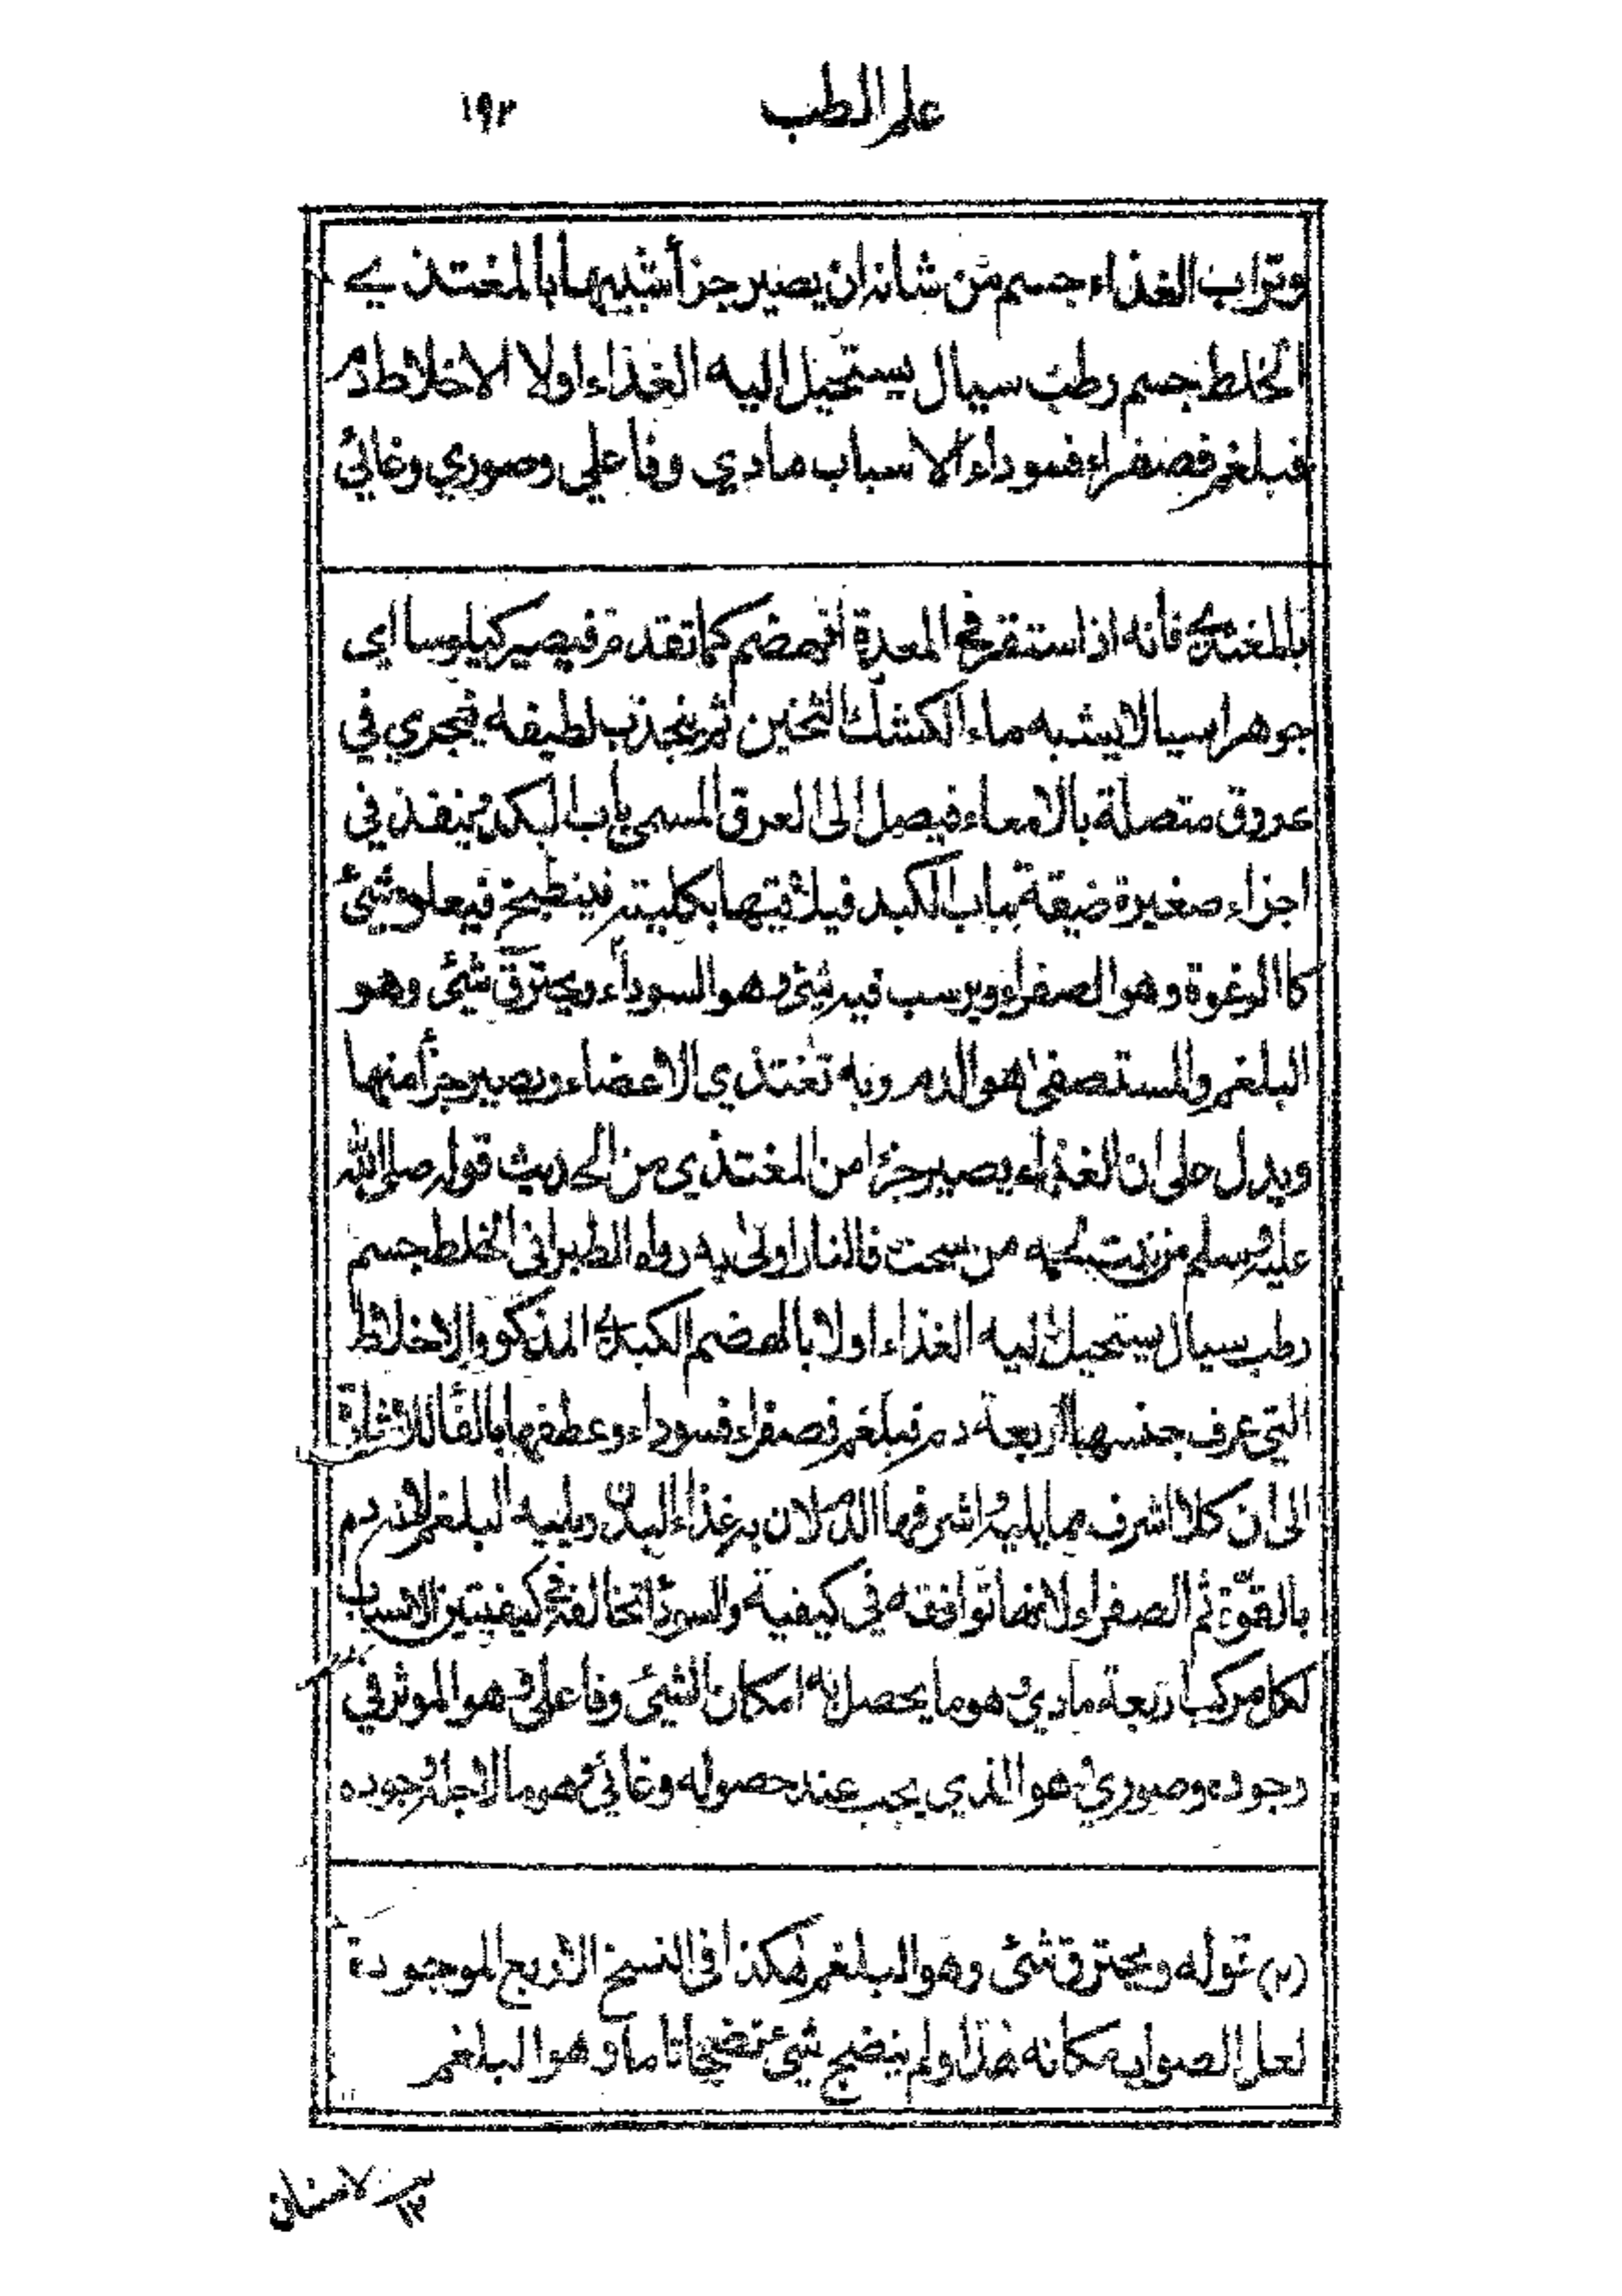 علم الطب ١٩٢
وتراب الغذاء جسم من شانه ان يصير جزأ شبيها بالمغتذي
الخلط جسم رطب سيال يستحيل اليه الغذاء اولا الاخلاط دم
فبلغم فصفراء فسوداء الاسباب مادي وفاعلي وصوري وغائي
بالمغتذي فانه اذا استقر في المعدة انهضم كما تقدم فيصير كيلوسا اي
جوهرا سيالا يشبه ماء الكشك الثخين ثم ينجذب لطيفه فيجري في
عروق متصلة بالامعاء فيصل الى العرق المسمى باب الكبد وينفذ في
اجزاء صغيرة ضيقة بباب الكبد فيلاقيها بكليته فينطبخ فيعلوه شئ
كاالرغوة وهو الصفراء ويرسب فيه شئ وهو السوداء ويحترق شئ وهو
البلغم والمستصفى هو الدم وبه تغتذي الاعضاء ويصير جزأ منها
ويدل على ان الغذاء يصير جزءا من المغتذي من الحديث قوله صلى الله
عليه وسلم من نبت لحمه من سحت فالنار اولى به رواه الطبراني الخلط جسم
رطب سيال يستحيل اليه الغذاء اولا بالهضم الكبدي المذكور والاخلاط
التي عرف جنسها اربعة دم فبلغم فصفراء فسوداء وعطفها بالفاء للاشارة
الى ان كلا اشرف مما يليه واشرفها الدم لان به غذاء البدن ويليه البلغم لانه دم
بالقوة ثم الصفراء لانها توافقه في كيفية والسوداء تخالفه في كيفيتين الاسباب
لكل مركب اربعة مادي وهو ما يحصل به امكان الشئ وفاعلي وهو الموثر في
وجوده وصوري وهو الذي يجب عند حصوله وغائي وهو ما لاجله وجوده
(٢) قوله ويحترق شئ وهو البلغم هكذا فى النسخ الاربع الموجودة
لعل الصواب مكانه هذا ولم ينضج شئ نضجا تاما وهو البلغم